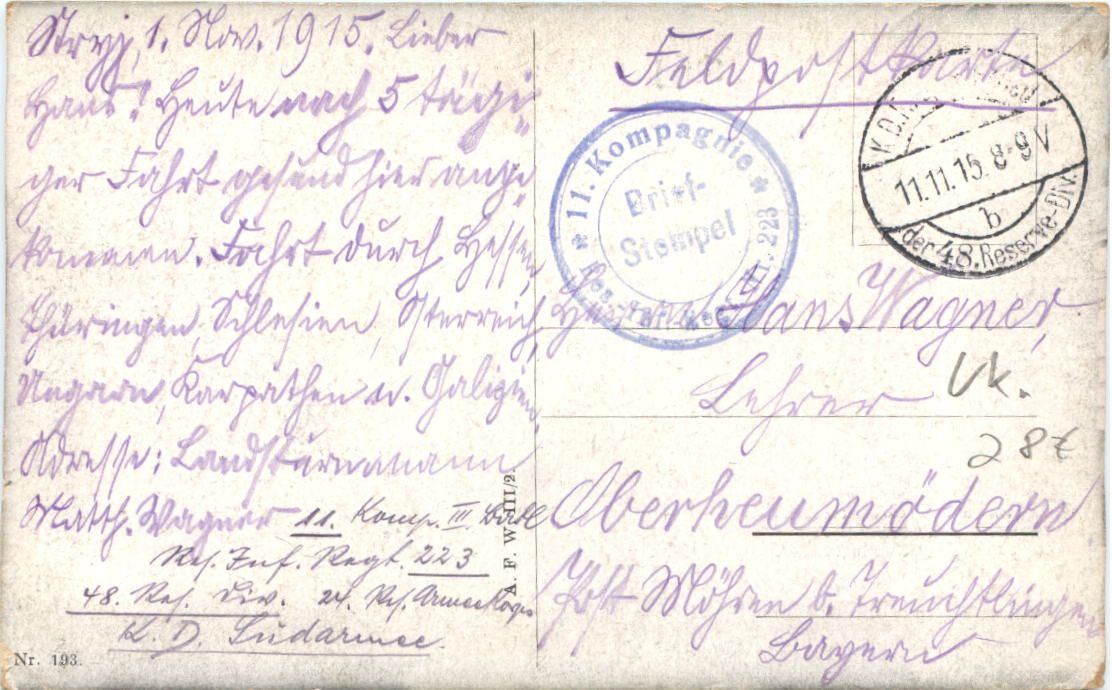 Stryj, 1. Nov. 1915. Lieber
Hans! Heute nach 5 tägi-
ger Fahrt gesund hier ange-
kommen. Fahrt durch Hessen,
Thüringen, Schlesien, Österreich,
Ungarn, Karpathen u. Galizien.
Adresse: Landsturmmann
Matth. Wagner 11. Komp. III. Batl
Res. Inf. Regt. 223
48. Res. Div. 24. Res. Armeekorps
K. D. Südarmee.
Nr. 193.
A. F. W. III/2.
Feldpostkarte
* 11. Kompagnie *
Brief-
Stempel
Nr. 223
K.D.
11.11.15. 8-9 V
b
der 48. Reserve-Div.
Hans Wagner,
Lehrer
Vk.
28€
Oberheumödern
Post Möhren b. Treuchtlingen
Bayern